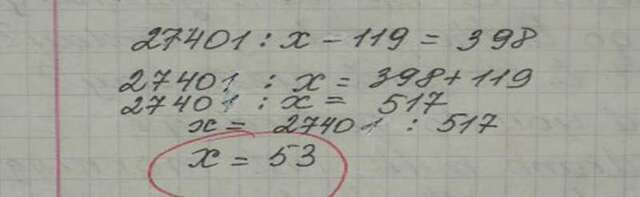 27401 : x - 119 = 398
27401 : x = 398 + 119
27401 : x = 517
x = 27401 : 517
x = 53